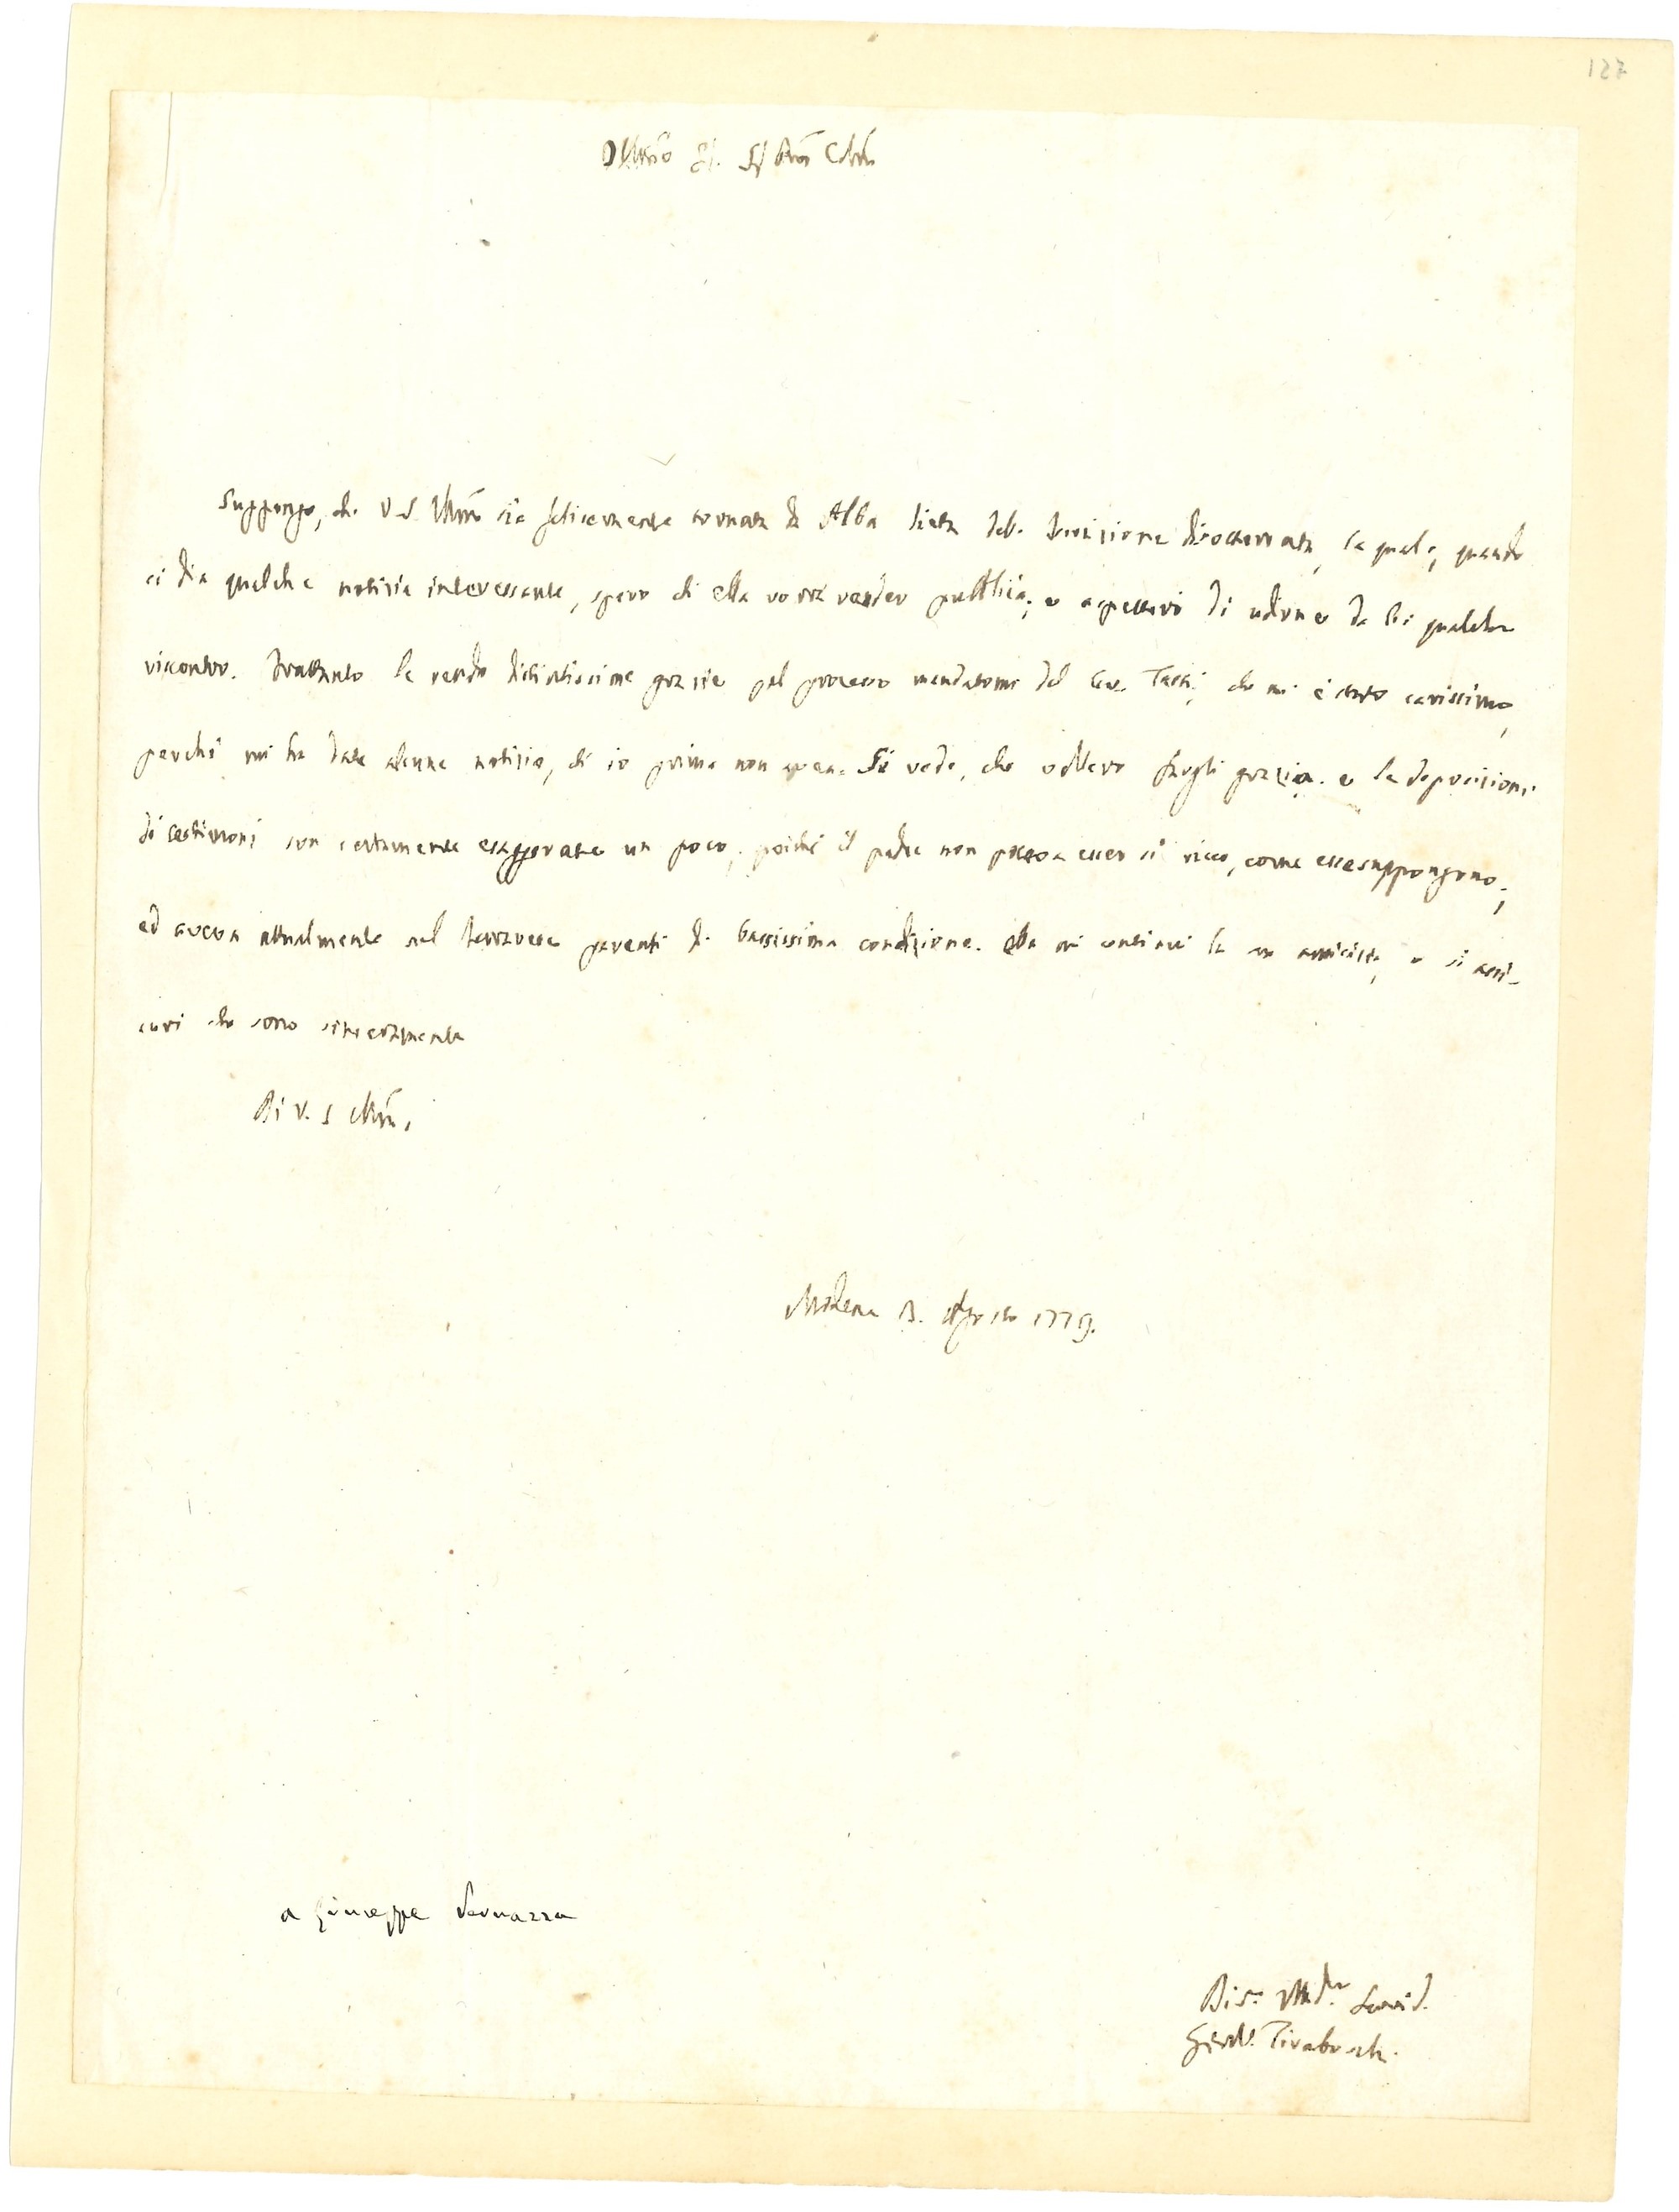 127
Illmo Sig. Sig. Pron Colmo
Suppongo, che V. S. Illma sia felicemente tornata da Alba lieta dell' Iscrizione dissotterrata, la quale, quando
ci dia qualche notizia interessante, spero ch' ella vorrà render pubblica; e aspetterò di udirne da lei qualche
riscontro. Frattanto le rendo distintissime grazie pel processo mandatomi del Cav. Tassi, che mi è stato carissimo,
perchè mi ha date alcune notizie, ch' io prima non avea. Si vede, che vollero fargli grazia. e le deposizioni
di testimonj son certamente esaggerate un poco, poichè il padre non poteva esser sì ricco, come esse suppongono;
ed aveva attualmente nel parenti di bassissima condizione. Ella mi continui la sua amicizia, e si assi-
curi che sono sinceramente
Di V. S Illma
Modena 3. Agosto 1779.
a Giuseppe Vernazza
Div.mo Obb.mo Servid.
Girol. Tiraboschi